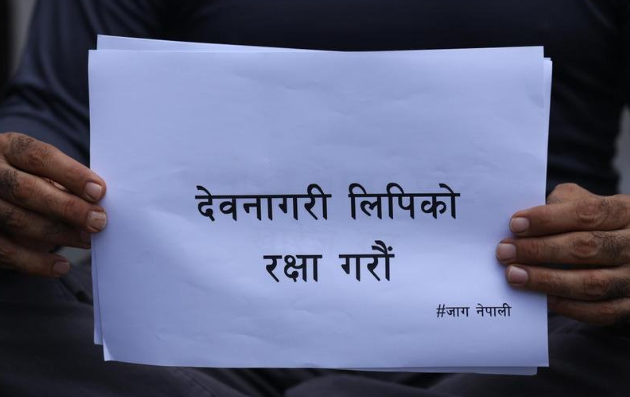 देवनागरी लिपिको
रक्षा गरौं
#जाग नेपाली